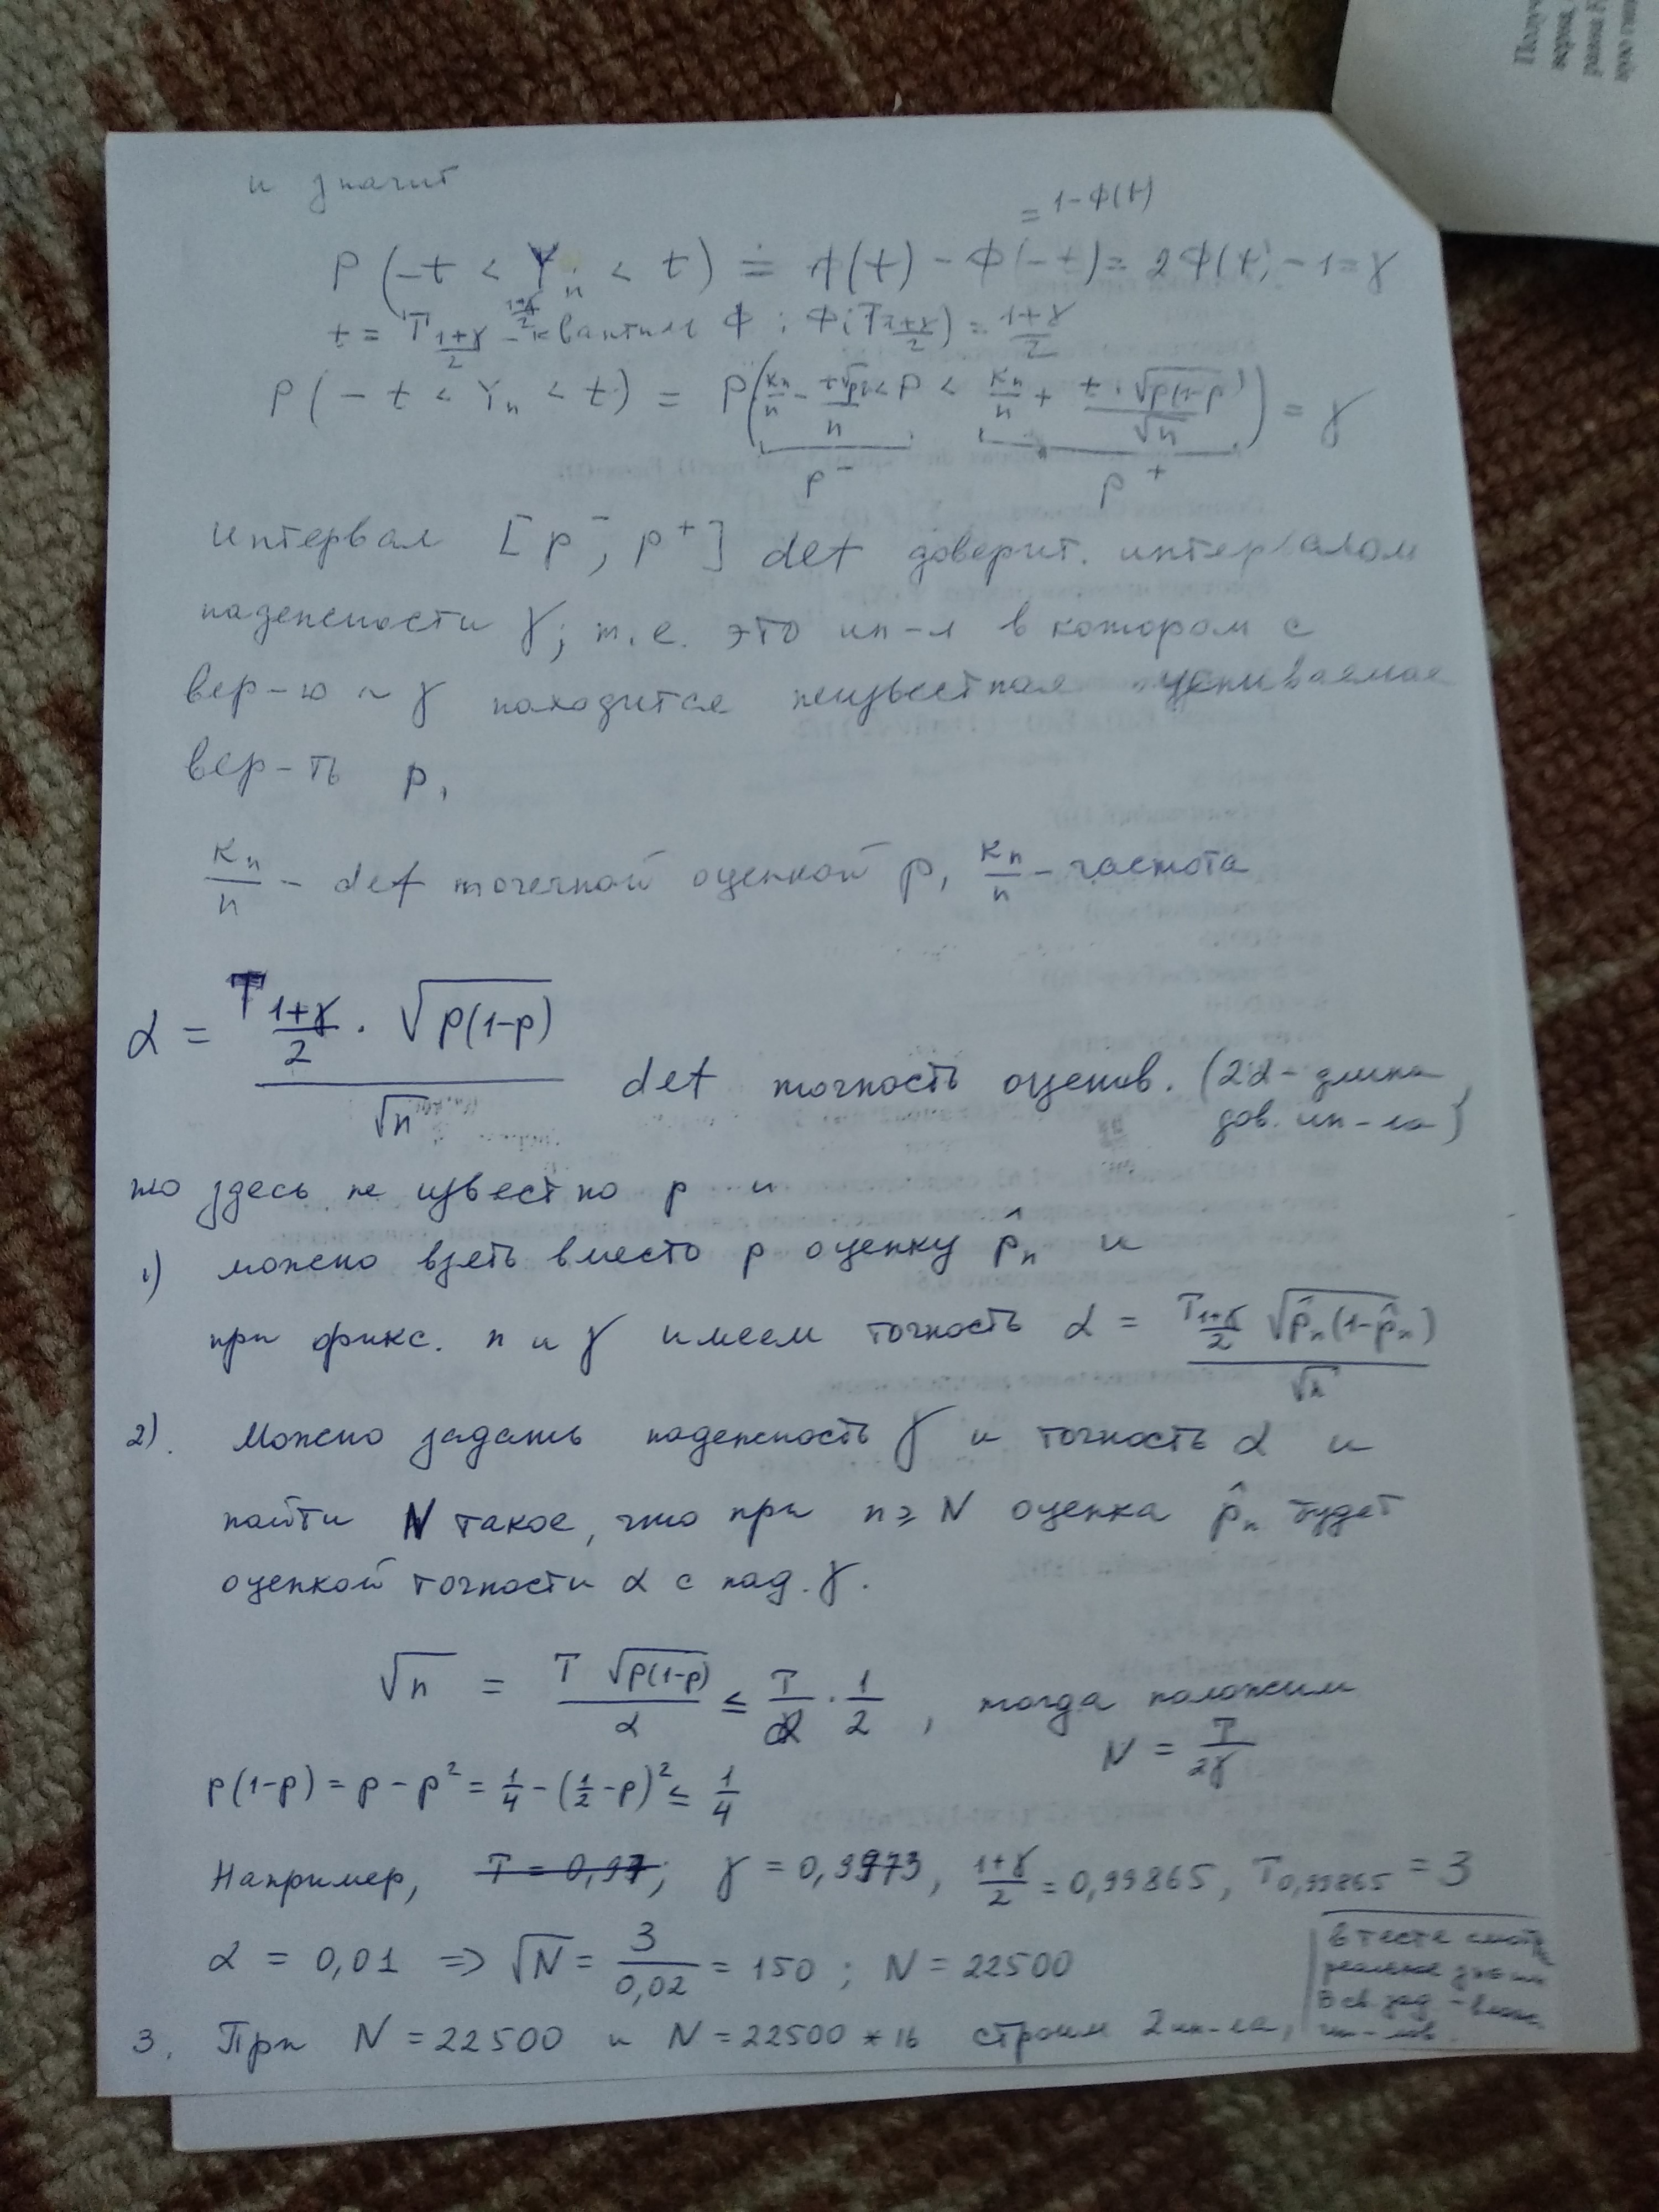 и значит
= 1-Ф(t)
P(-t < Yₙ < t) ≐ Ф(t) - Ф(-t) = 2Ф(t) - 1 = γ
t = T_{\frac{1+γ}{2}} - \frac{1+γ}{2} квантиль Ф : Ф(T_{\frac{1+γ}{2}}) = \frac{1+γ}{2}
P(-t < Yₙ < t) = P(\frac{кₙ}{n} - \frac{t√p}{n} < P < \frac{кₙ}{n} + \frac{t·√p(1-p)}{√n}) = γ
p⁻ p⁺
Интервал [p⁻, p⁺] def доверит. интервалом
надежности γ; т.е. это ин-л в котором с
вер-ю ~ γ находится неизвестная оцениваемая
вер-ть p,
\frac{кₙ}{n} - def точечной оценкой p, \frac{кₙ}{n} - частота
α = \frac{T_{\frac{1+γ}{2}} · √p(1-p)}{√n} def точность оценив. (2α - длина
дов. ин-ла)
но здесь не известно p и
1) можно взять вместо p оценку p̂ₙ и
при фикс. n и γ имеем точность α = \frac{T_{\frac{1+γ}{2}} √p̂ₙ(1-p̂ₙ)}{√n}
2). Можно задать надежность γ и точность α и
найти N такое, что при n ≥ N оценка p̂ₙ будет
оценкой точности α с над. γ.
√n = \frac{T √p(1-p)}{α} ≤ \frac{T}{α} · \frac{1}{2}, тогда положим
N = \frac{T}{2γ}
p(1-p) = p - p² = \frac{1}{4} - (\frac{1}{2} - p)² ≤ \frac{1}{4}
Например, T = 0,97; γ = 0,9973, \frac{1+γ}{2} = 0,99865, T_{0,99865} = 3
α = 0,01 => √N = \frac{3}{0,02} = 150 ; N = 22500
в тесте
3. При N = 22500 и N = 22500 * 16 строим 2 ин-ла,